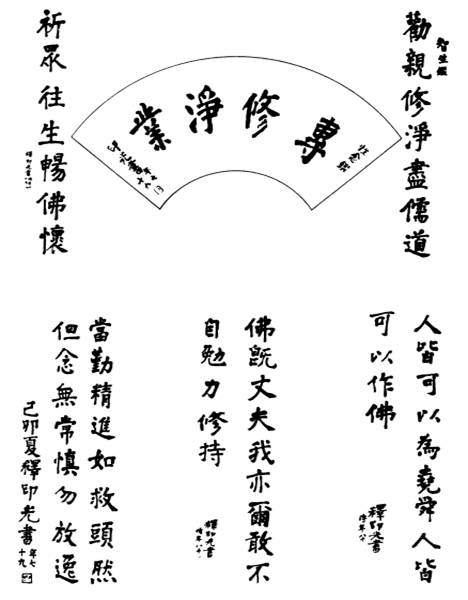 智生鑑
勸親修淨盡儒道
祈眾往生暢佛懷
專修淨業
印光書
年七十八
人皆可以為堯舜人皆
可以作佛
釋印光書
佛既丈夫我亦爾敢不
自勉力修持
釋印光書
當勤精進如救頭然
但念無常慎勿放逸
己卯夏釋印光書
年七十九